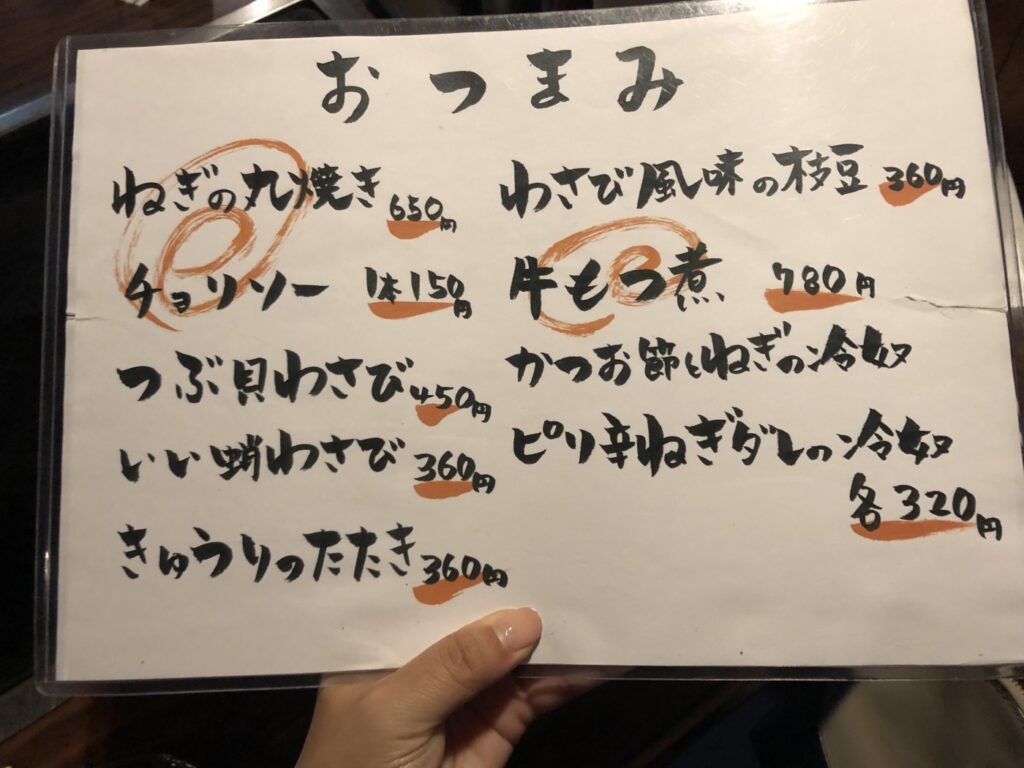 おつまみ
ねぎの丸焼き 650円
チョリソー 1本150円
つぶ貝わさび 450円
いい蛸わさび 360円
きゅうりのたたき 360円
わさび風味の枝豆 360円
牛もつ煮 780円
かつお節とねぎの冷奴
ピリ辛ねぎダレの冷奴
各320円